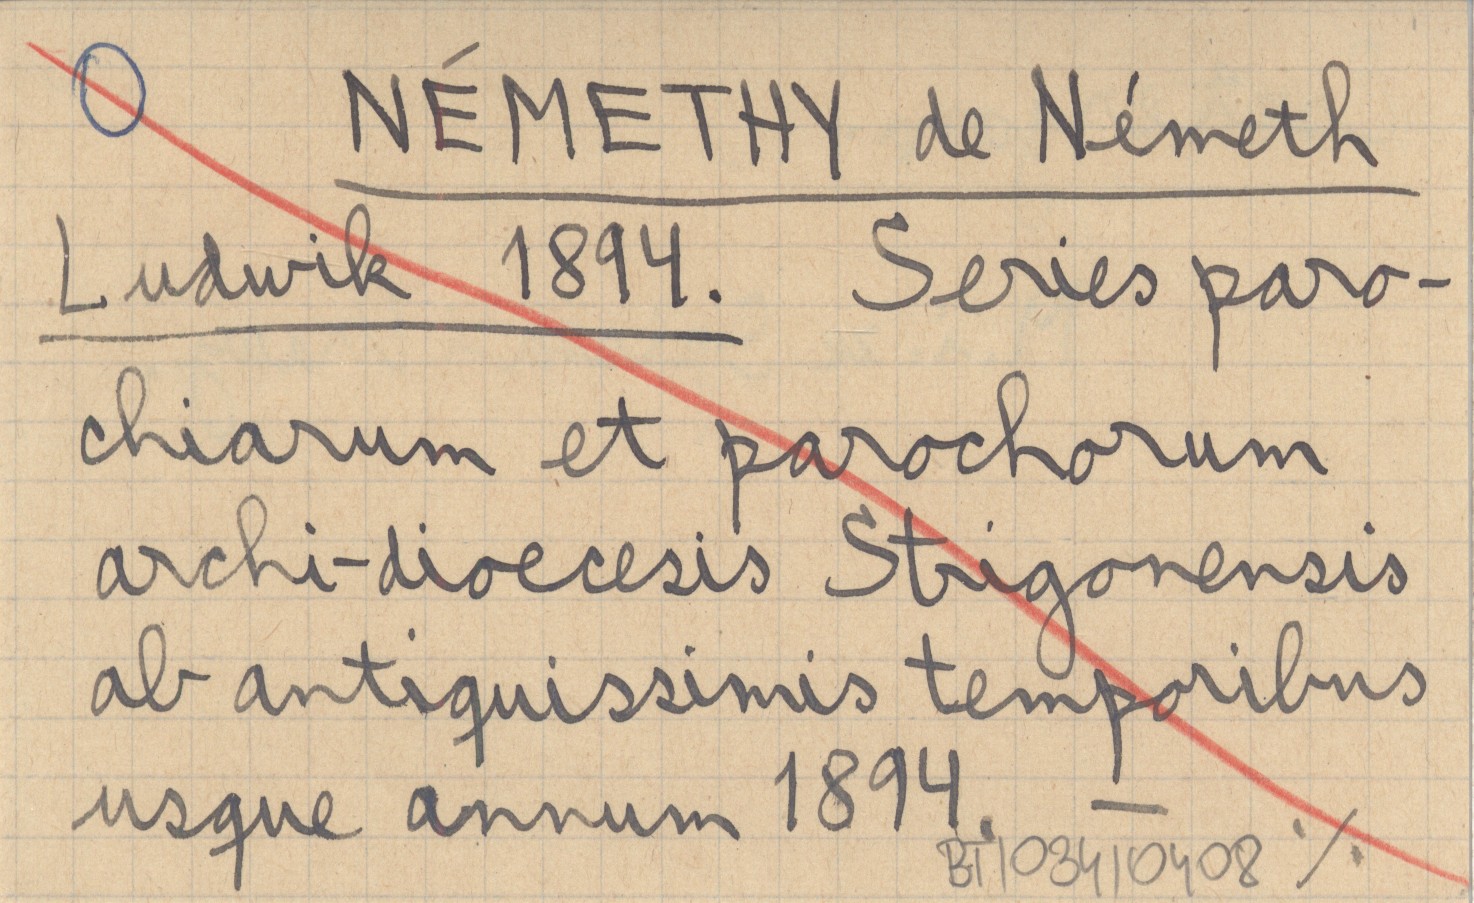 NÉMETHY de Németh
Ludwik 1894. Series paro-
chiarum et parochorum
archi-dioecesis Strigonensis
ab antiquissimis temporibus
usque annum 1894. —
BT|034|0408 ·/.